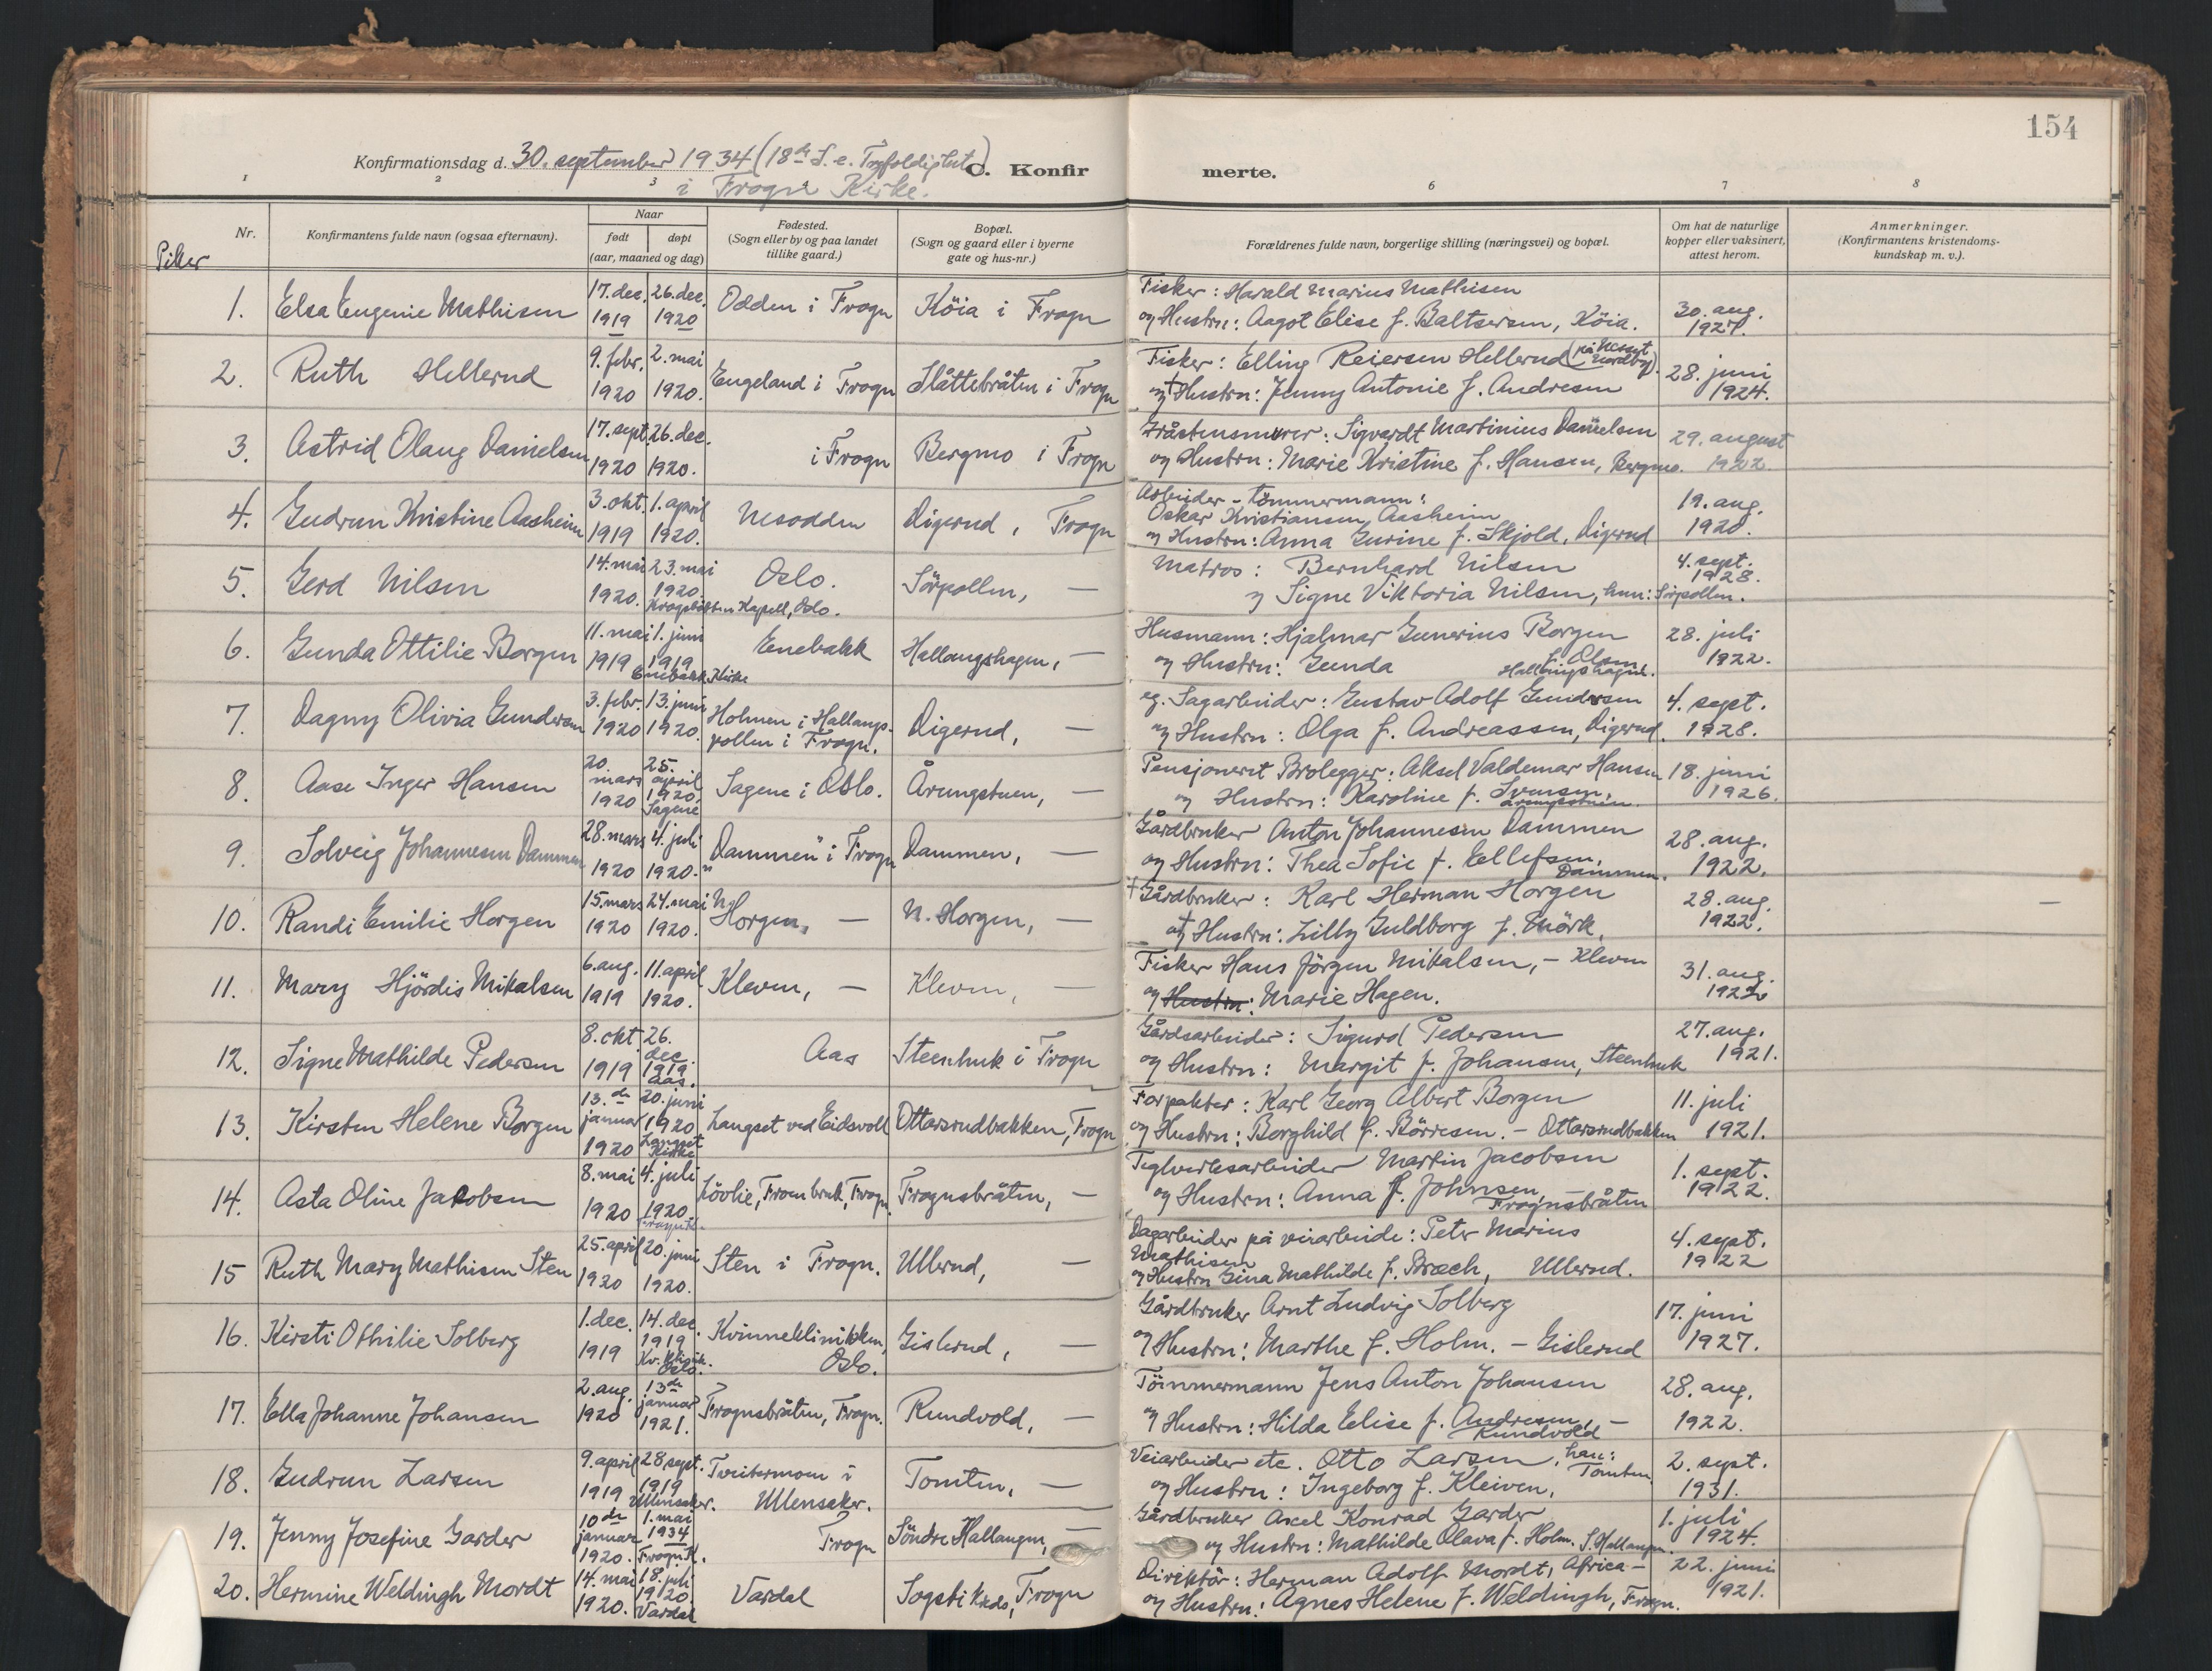 154
Konfirmationsdag d. 30. september 1934 (18de S. e. Trefoldighet)
i Frogn Kirke.
C. Konfir merte.
1 2 3 6 7 8
Piker
Nr.
Konfirmantens fulde navn (ogsaa efternavn).
Naar
født døpt
(aar, maaned og dag)
Fødested.
(Sogn eller by og paa landet
tillike gaard.)
Bopæl.
(Sogn og gaard eller i byerne
gate og hus-nr.)
Forældrenes fulde navn, borgerlige stilling (næringsvei) og bopæl.
Om hat de naturlige
kopper eller vaksinert,
attest herom.
Anmerkninger.
(Konfirmantens kristendoms-
kundskap m. v.).
1. Elsa Eugenie Mathisen
17. dec. 1919
26. dec. 1920
Odden i Frogn
Köia i Frogn
Fisker: Harald Marius Mathisen
og Hustru: Aagot Elise f. Baltsersen, Köia.
30. aug.
1927.
2. Ruth Hellerud
9. febr. 1920
2. mai 1920.
Engeland i Frogn
Slåttebråten i Frogn
Fisker: Elling Reiersen Hellerud (på Nesset Nordby).
og † Hustru: Jenny Antonie f. Andresen
28. juni
1924.
3. Astrid Olaug Danielsen
17. sept. 1920
26. dec. 1920.
i Frogn
Bergmo i Frogn
Gråstensmurer: Sigvardt Martinius Danielsen
og Hustru: Marie Kristine f. Hansen, Bergmo.
29. august
1922.
4. Gudrun Kristine Aasheim
3. okt. 1919
1. april 1920.
Nesodden
Digerud, Frogn
Arbeider - tömmermann:
Oskar Kristiansen Aasheim
og Hustru: Anna Gurine f. Skjold, Digerud
19. aug.
1920.
5. Gerd Nilsen
14. mai 1920.
23. mai 1920.
Krogstötten Kapell, Oslo.
Oslo.
Sörpollen, —
Matros: Bernhard Nilsen
og Signe Viktoria Nilsen, hun: Sörpollen.
4. sept.
1928.
6. Gunda Ottilie Borgen
11. mai 1919
1. juni 1919
Enebakk Kirke
Enebakk
Hallangshagen, —
Husmann: Hjalmar Gunerius Borgen
og Hustru: Gunda f. Olsen
Hallangshagen.
28. juli
1922.
7. Dagny Olivia Gundersen
3. febr. 1920
13. juni 1920.
Holmen i Hallangs-
pollen i Frogn.
Digerud, —
eg. Sagarbeider: Gustav Adolf Gundersen
og Hustru: Olga f. Andreassen, Digerud.
4. sept.
1928.
8. Aase Inger Hansen
20. mars 1920
25. april 1920. Sagene
Sagene i Oslo.
Årungstuen, —
Pensjoneret Brolegger: Aksel Valdemar Hansen
og Hustru: Karoline f. Svensen,
Årungstuen.
18. juni
1926.
9. Solveig Johannesen Dammen
28. mars 1920
4. juli 1920.
"Dammen" i Frogn
Dammen, —
Gårdbruker Anton Johannesen Dammen
og Hustru: Thea Sofie f. Ellefsen,
Dammen.
28. aug.
1922.
10. Randi Emilie Horgen
15. mars 1920
24. mai 1920.
N. Horgen, —
N. Horgen, —
† Gårdbruker: Karl Herman Horgen
og † Hustru: Lilly Guldborg f. Mörk.
28. aug.
1922.
—
11. Mary Hjördis Mikalsen
6. aug. 1919
11. april 1920.
Kleven, —
Kleven, —
Fisker Hans Jörgen Mikalsen, - Kleven
og Hustru: Marie Hagen.
31. aug.
12. Signe Mathilde Pedersen
8. okt 1919
26. dec. 1919 Aas.
Aas
Steenhuk i Frogn
Gårdsarbeider: Sigurd Pedersen
og Hustru: Margit f. Johansen, Steenhuk
27. aug.
1921.
13. Kirsten Helene Borgen
13.de januar 1920
20. juni 1920 Langset Kirke
Langset ved Eidsvoll
Ottarsrudbakken, Frogn
Forpakter: Karl Georg Albert Borgen
og Hustru: Borghild f. Börresen. - Ottarsrudbakken
11. juli
1921.
14. Asta Oline Jakobsen
8. mai 1920
4. juli 1920.
Lövlie, Fron bruk, Frogn.
Frognsbråten, —
Teglverksarbeider Martin Jacobsen
og Hustru: Anna f. Johnsen,
Frognsbråten
1. sept.
1922.
15 Ruth Mary Mathisen Sten
25. april 1920
20. juni 1920.
Sten i Frogn.
Ullerud, —
Dagarbeider på veiarbeide: Peter Marius
Mathisen
og Hustru Gina Mathilde f. Bræch, Ullerud.
4. sept.
1922
16. Kirsti Othilie Solberg
1. dec. 1919
14. dec. 1919
Kv. klinik. Oslo.
Kvinneklinikken,
Oslo.
Gislerud, —
Gårdbruker Arnt Ludvig Solberg
og Hustru: Marthe f. Holm. - Gislerud
17. juni
1927.
17. Ella Johanne Johansen
2. aug. 1920
13de januar 1921.
Frognsbråten, Frogn.
Rundvold, —
Tömmermann Jens Anton Johansen
og Hustru: Hilda Elise f. Andresen, -
Rundvold
28. aug.
1922.
18. Gudrun Larsen
9. april 1919
28. sept. 1919
Ullensaker.
Tveitermoen i
Ullensaker.
Tomten, —
Veiarbeider etc. Otto Larsen, han: Tomten
og Hustru: Ingeborg f. Kleiven.
2. sept.
1931.
19. Jenny Josefine Garder
10de januar 1920.
1. mai 1934 Frogn K.
Frogn
Söndre Hallangen, —
Gårdbruker Axel Konrad Garder
og Hustru: Mathilde Olava f. Holm. S. Hallangen.
1. juli
1924.
20. Hermine Weldingh Mordt
14. mai 1920.
18. juli 1920 Vardal
Vardal
Sogsti Frogn
Direktör: Herman Adolf Mordt, Africa -
og Hustru: Agnes Helene f. Weldingh, Frogn.
22. juni
1921.